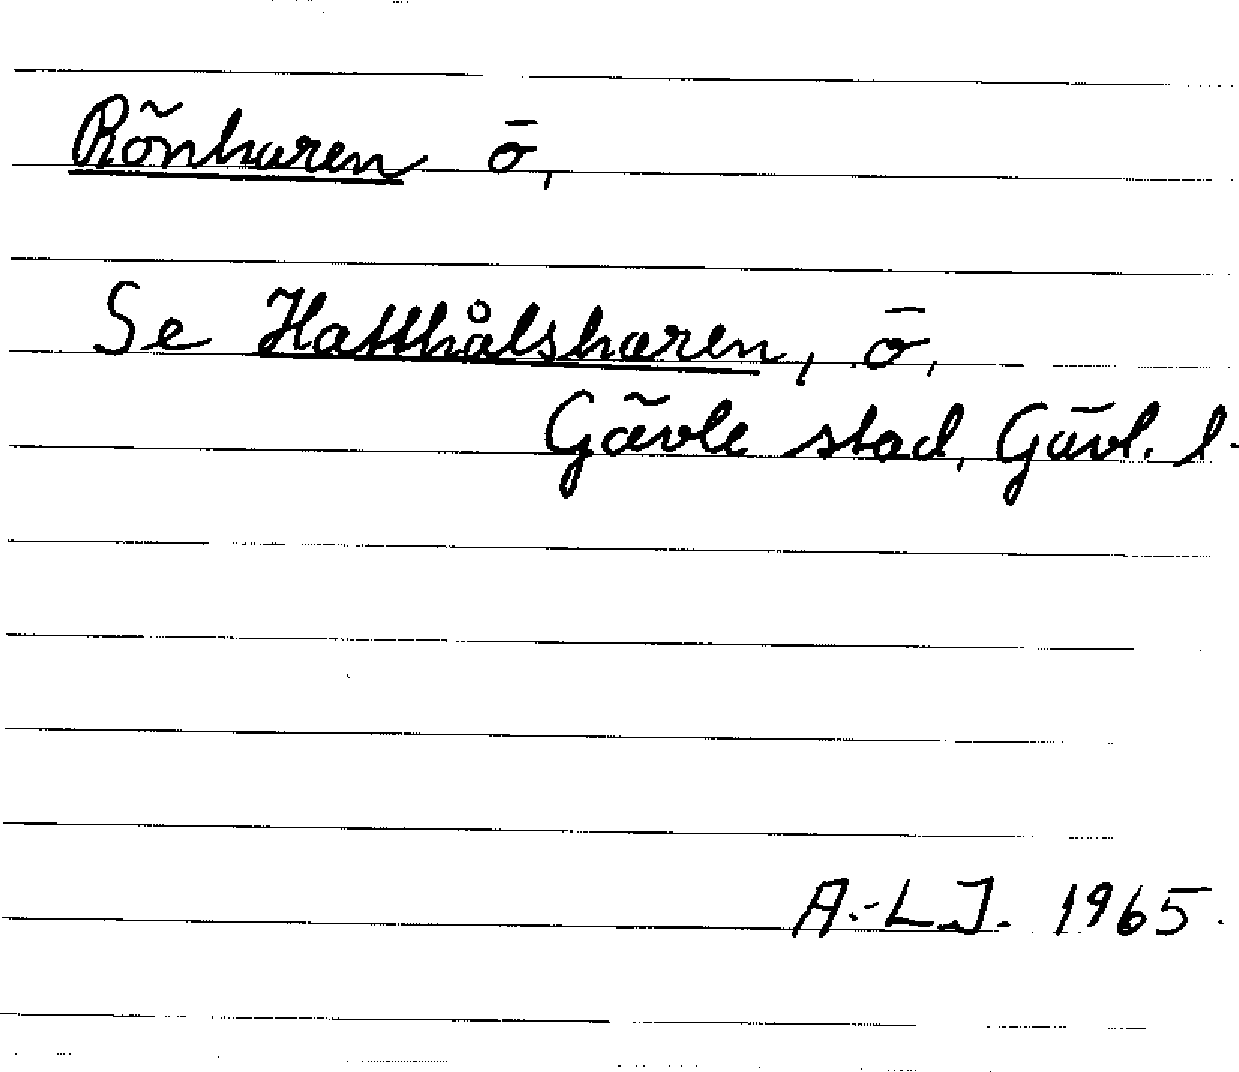 Rönharen ö,
Se Hatthålsharen, ö,
Gävle stad, Gävl. l.
A.-L.J. 1965.